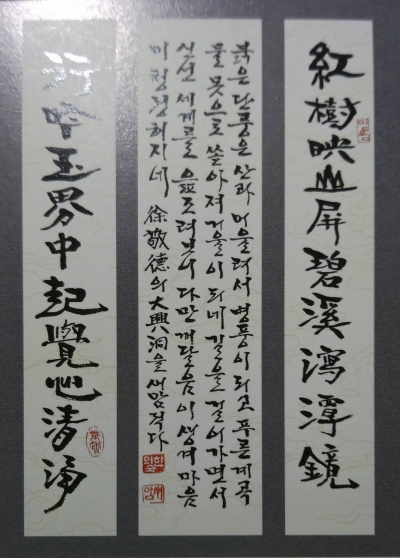 紅樹映山屛碧溪瀉潭鏡
붉은 단풍은 산과 어울려서 병풍이 되고 푸른계곡
물 못으로 쏟아져 거울이 되네 길을 걸어가면서
신선 세계를 읊조려보니 다만 깨달음이 생겨 마음
이 청정해지네 徐敬德의 大興洞을 새맘 적다
行吟玉界中起覺心清淨